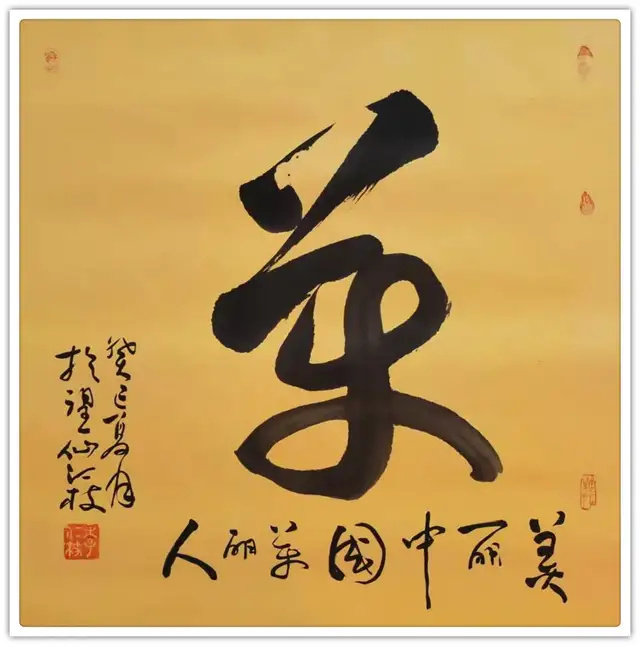 美
美丽中國美丽人
癸巳夏月
於望仙